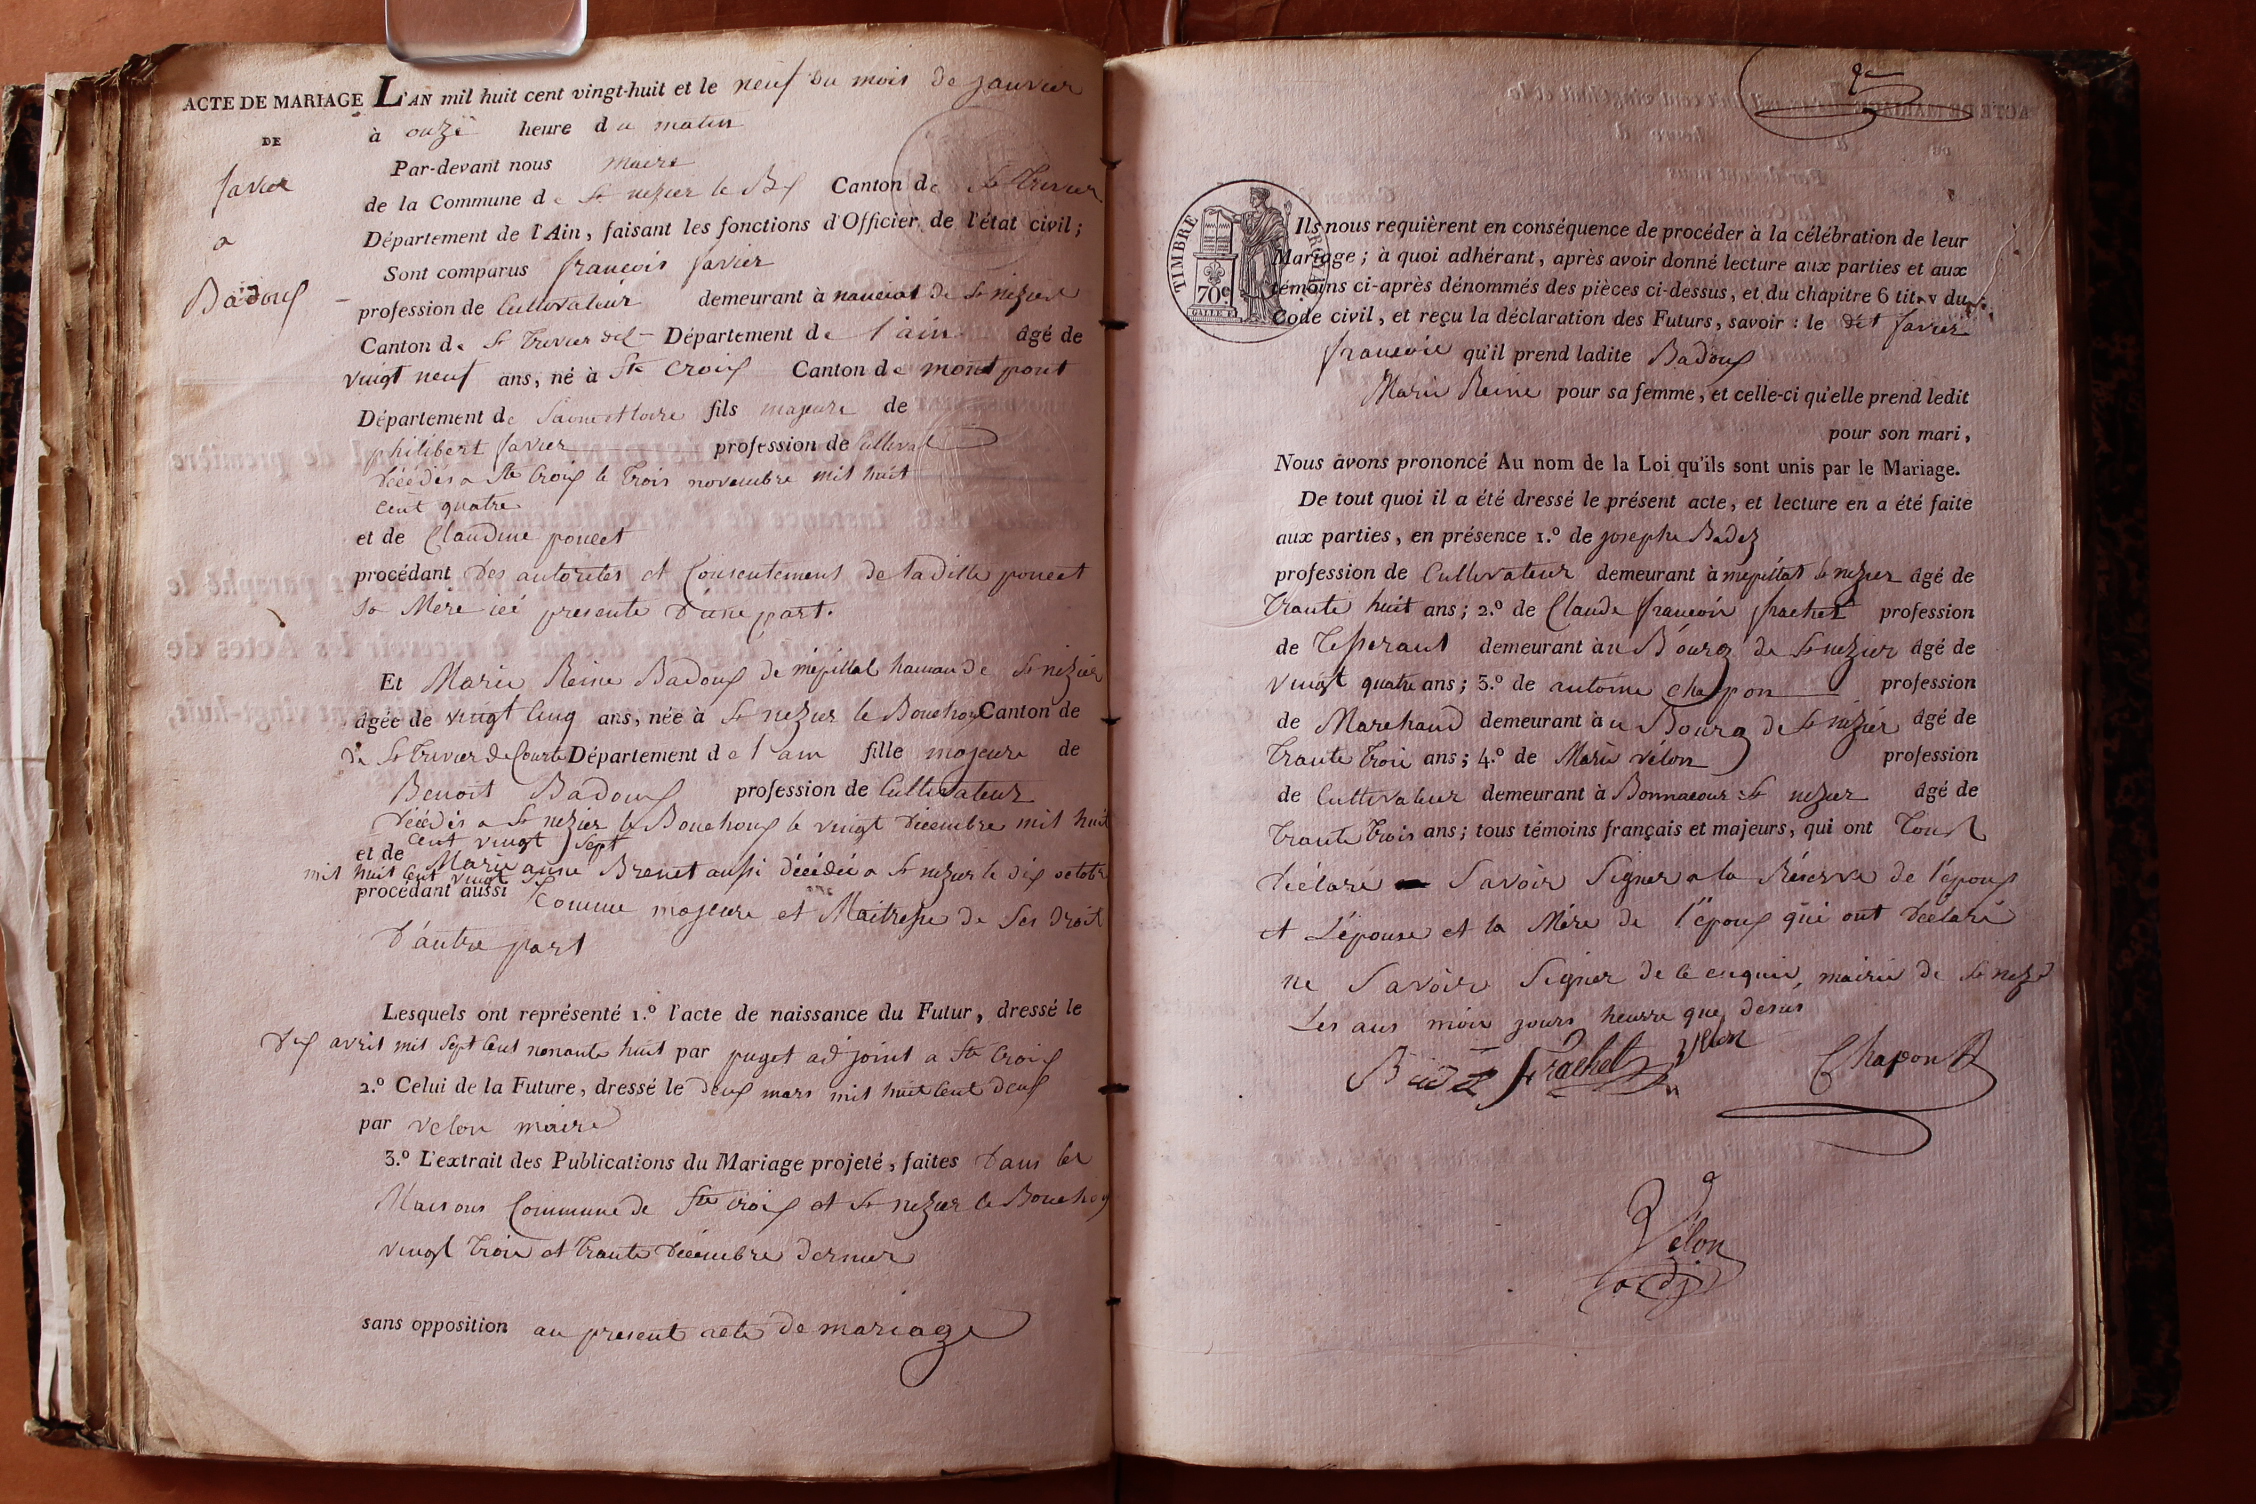 ACTE DE MARIAGE L'AN mil huit cent vingt-huit et le neuf du mois de janvier
DE
à onze heure du matin
Par-devant nous maire
Favier
de la Commune de St nizier le Bx Canton de St Trivier
a
Département de l'Ain, faisant les fonctions d'Officier de l'état civil;
Sont comparus françois favier
Badoux
profession de Cultivateur demeurant à nanciat de St nizier
Canton de St Trivier Département de l'ain âgé de
vingt neuf ans, né à Ste Croix Canton de montpont
Département de Saone et loire fils majeure de
philibert favier profession de Cultivat
décédés a Ste Croix le Trois novembre mil huit
cent quatre
et de Claudine poncet
procédant des autorites et Consentement de ladite poncet
sa Mère icé presente d'une part.
Et Marie Reine Badoux de mépillat hamau de St nizier
âgée de vingt Cinq ans, née à St nizier le Bouchoux Canton de
de St Trivier de Courte Département de l'ain fille majeure de
Benoit Badoux profession de Cultivateur
décédés a St nizier le Bouchoux le vingt décembre mil huit
cent vingt sept
et de Marie anne Brenet aussi décédée a St nizier le dix octobre
mil huit Cent vingt
procédant aussi Comme majeure et Maitresse de Ses droit
d'autre part
Lesquels ont représenté 1.º l'acte de naissance du Futur, dressé le
dix avril mil Sept Cent nonante huit par puget adjoint a Ste Croix
2.º Celui de la Future, dressé le deux mars mil huit Cent deux
par velon maire
3.º L'extrait des Publications du Mariage projeté, faites dans les
Maisons Commune de Ste Croix et St nizier le Bouchoux
vingt Trois et Trante décembre dernier
sans opposition au present acte de mariage
TIMBRE ROYAL
70c
Ils nous requièrent en conséquence de procéder à la célébration de leur
Mariage; à quoi adhérant, après avoir donné lecture aux parties et aux
témoins ci-après dénommés des pièces ci-dessus, et du chapitre 6 tit. v du
Code civil, et reçu la déclaration des Futurs, savoir: le dit favier
françois qu'il prend ladite Badoux
Marie Reine pour sa femme, et celle-ci qu'elle prend ledit
pour son mari,
Nous avons prononcé Au nom de la Loi qu'ils sont unis par le Mariage.
De tout quoi il a été dressé le présent acte, et lecture en a été faite
aux parties, en présence 1.º de josephe Badez
profession de Cultivateur demeurant à mépillat St nizier âgé de
Trante huit ans; 2.º de Claude françois frachet profession
de Tisserant demeurant au Bourg de St nizier âgé de
vingt quatre ans; 3.º de antoine chapon profession
de Marchand demeurant au Bourg de St nizier âgé de
Trante Trois ans; 4.º de Marie vélon profession
de Cultivateur demeurant à Bonnacour St nizier âgé de
Trante Trois ans; tous témoins français et majeurs, qui ont Tous
déclaré Savoir Signer a la Réserve de l'époux
et L'épouse et la Mère de l'époux qui ont déclaré
ne Savoir Signer de ce enquis, mairie de St nizie
Les ans mois jours heurre que desus
Badez Frachet Velon Chapon
Vélon
adj